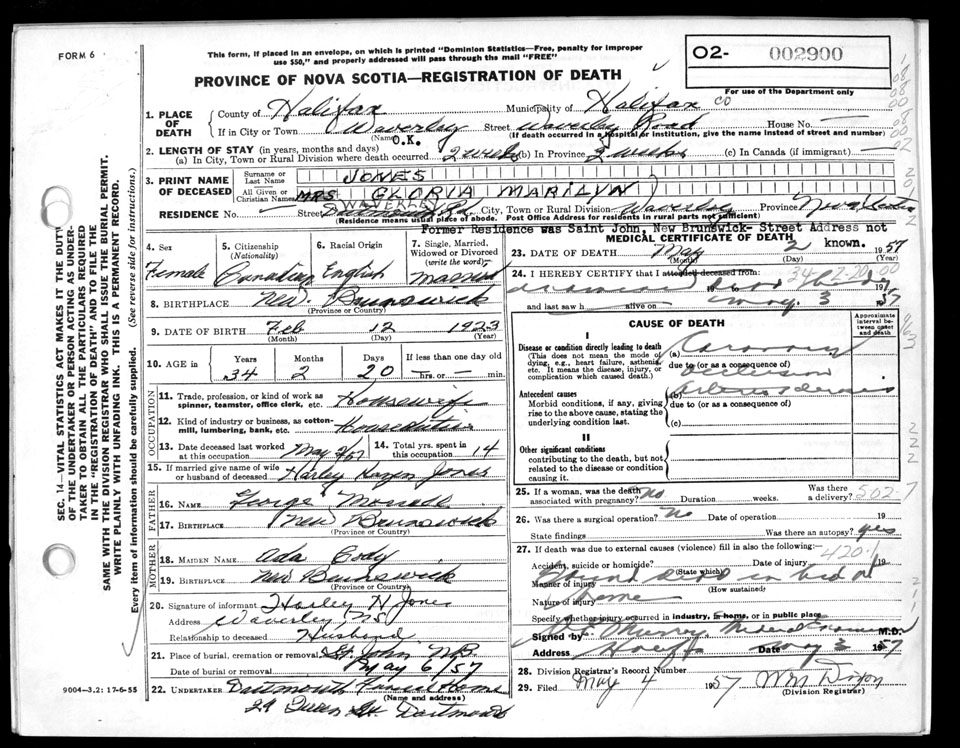 FORM 6
This form, if placed in an envelope, on which is printed "Dominion Statistics—Free, penalty for improper
use $50," and properly addressed will pass through the mail "FREE"
PROVINCE OF NOVA SCOTIA—REGISTRATION OF DEATH
O2- 002900
For use of the Department only
1. PLACE OF DEATH
County of Halifax Municipality of Halifax CO
If in City or Town Waverley Street Waverley Road House No. —
(Name) O.K. (If death occurred in a hospital or institution, give the name instead of street and number)
2. LENGTH OF STAY (in years, months and days)
(a) In City, Town or Rural Division where death occurred 2 weeks (b) In Province 2 weeks (c) In Canada (if immigrant) —
3. PRINT NAME OF DECEASED
Surname or Last Name JONES
All Given or Christian Names MRS GLORIA MARILYN
WAVERLEY
RESIDENCE No. — Street Dartmouth Rd. City, Town or Rural Division Waverley Province Nova Scotia
(Residence means usual place of abode. Post Office Address for residents in rural parts not sufficient)
Former Residence was Saint John, New Brunswick- Street Address not
known.
4. Sex Female
5. Citizenship (Nationality) Canadian
6. Racial Origin English
7. Single, Married, Widowed or Divorced (write the word) Married
8. BIRTHPLACE New Brunswick
(Province or Country)
9. DATE OF BIRTH Feb 12 1923
(Month) (Day) (Year)
10. AGE in Years Months Days If less than one day old
34 2 20 — hrs. or — min.
OCCUPATION
11. Trade, profession, or kind of work as spinner, teamster, office clerk, etc. Housewife
12. Kind of industry or business, as cotton-mill, lumbering, bank, etc. Household duties
13. Date deceased last worked at this occupation May 2/57
14. Total yrs. spent in this occupation 14
15. If married give name of wife or husband of deceased Harley Hazen Jones
FATHER
16. NAME George
17. BIRTHPLACE New Brunswick
(Province or Country)
MOTHER
18. MAIDEN NAME Ada Cody
19. BIRTHPLACE New Brunswick
(Province or Country)
20. Signature of informant Harley H Jones
Address Waverley, NS
Relationship to deceased Husband
21. Place of burial, cremation or removal St. John NB
Date of burial or removal May 6/57
22. UNDERTAKER Dartmouth Funeral Home
(Name and address)
29 Queen St. Dartmouth
9004-3.2: 17-6-55
MEDICAL CERTIFICATE OF DEATH
23. DATE OF DEATH May 2 1957
(Month) (Day) (Year)
24. I HEREBY CERTIFY that I attended deceased from:
34-2-20.00
and last saw h alive on May 3 1957
CAUSE OF DEATH
Approximate interval between onset and death
I
Disease or condition directly leading to death
(This does not mean the mode of dying, e.g., heart failure, asthenia, etc. It means the disease, injury, or complication which caused death.)
(a) Coronary
due to (or as a consequence of)
Antecedent causes
Morbid conditions, if any, giving rise to the above cause, stating the underlying condition last.
(b)
due to (or as a consequence of)
(c)
II
Other significant conditions
contributing to the death, but not related to the disease or condition causing it.
25. If a woman, was the death associated with pregnancy? no Duration weeks. Was there a delivery? 502
26. Was there a surgical operation? No Date of operation 19
State findings Was there an autopsy? yes
27. If death was due to external causes (violence) fill in also the following: 420.1
Accident, suicide or homicide? Date of injury 19
(State which)
Manner of injury Found dead in bed at
(How sustained)
Nature of injury home
Specify whether injury occurred in industry, in home, or in public place
Signed by Murray Medical Examiner M.D.
Address Date May 3 1957
28. Division Registrar's Record Number
29. Filed May 4 1957 Wm Dixon
(Division Registrar)
SEC. 14—VITAL STATISTICS ACT MAKES IT THE DUTY
OF THE UNDERTAKER OR PERSON ACTING AS UNDER-
TAKER TO OBTAIN ALL THE PARTICULARS REQUIRED
IN THE "REGISTRATION OF DEATH" AND TO FILE THE
SAME WITH THE DIVISION REGISTRAR WHO SHALL ISSUE THE BURIAL PERMIT.
WRITE PLAINLY WITH UNFADING INK. THIS IS A PERMANENT RECORD.
Every item of information should be carefully supplied. (See reverse side for instructions.)